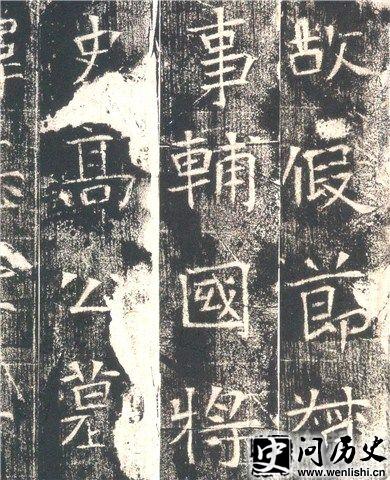 故假節
事輔國將
史高公墓
史问历史
www.wenlishi.cn